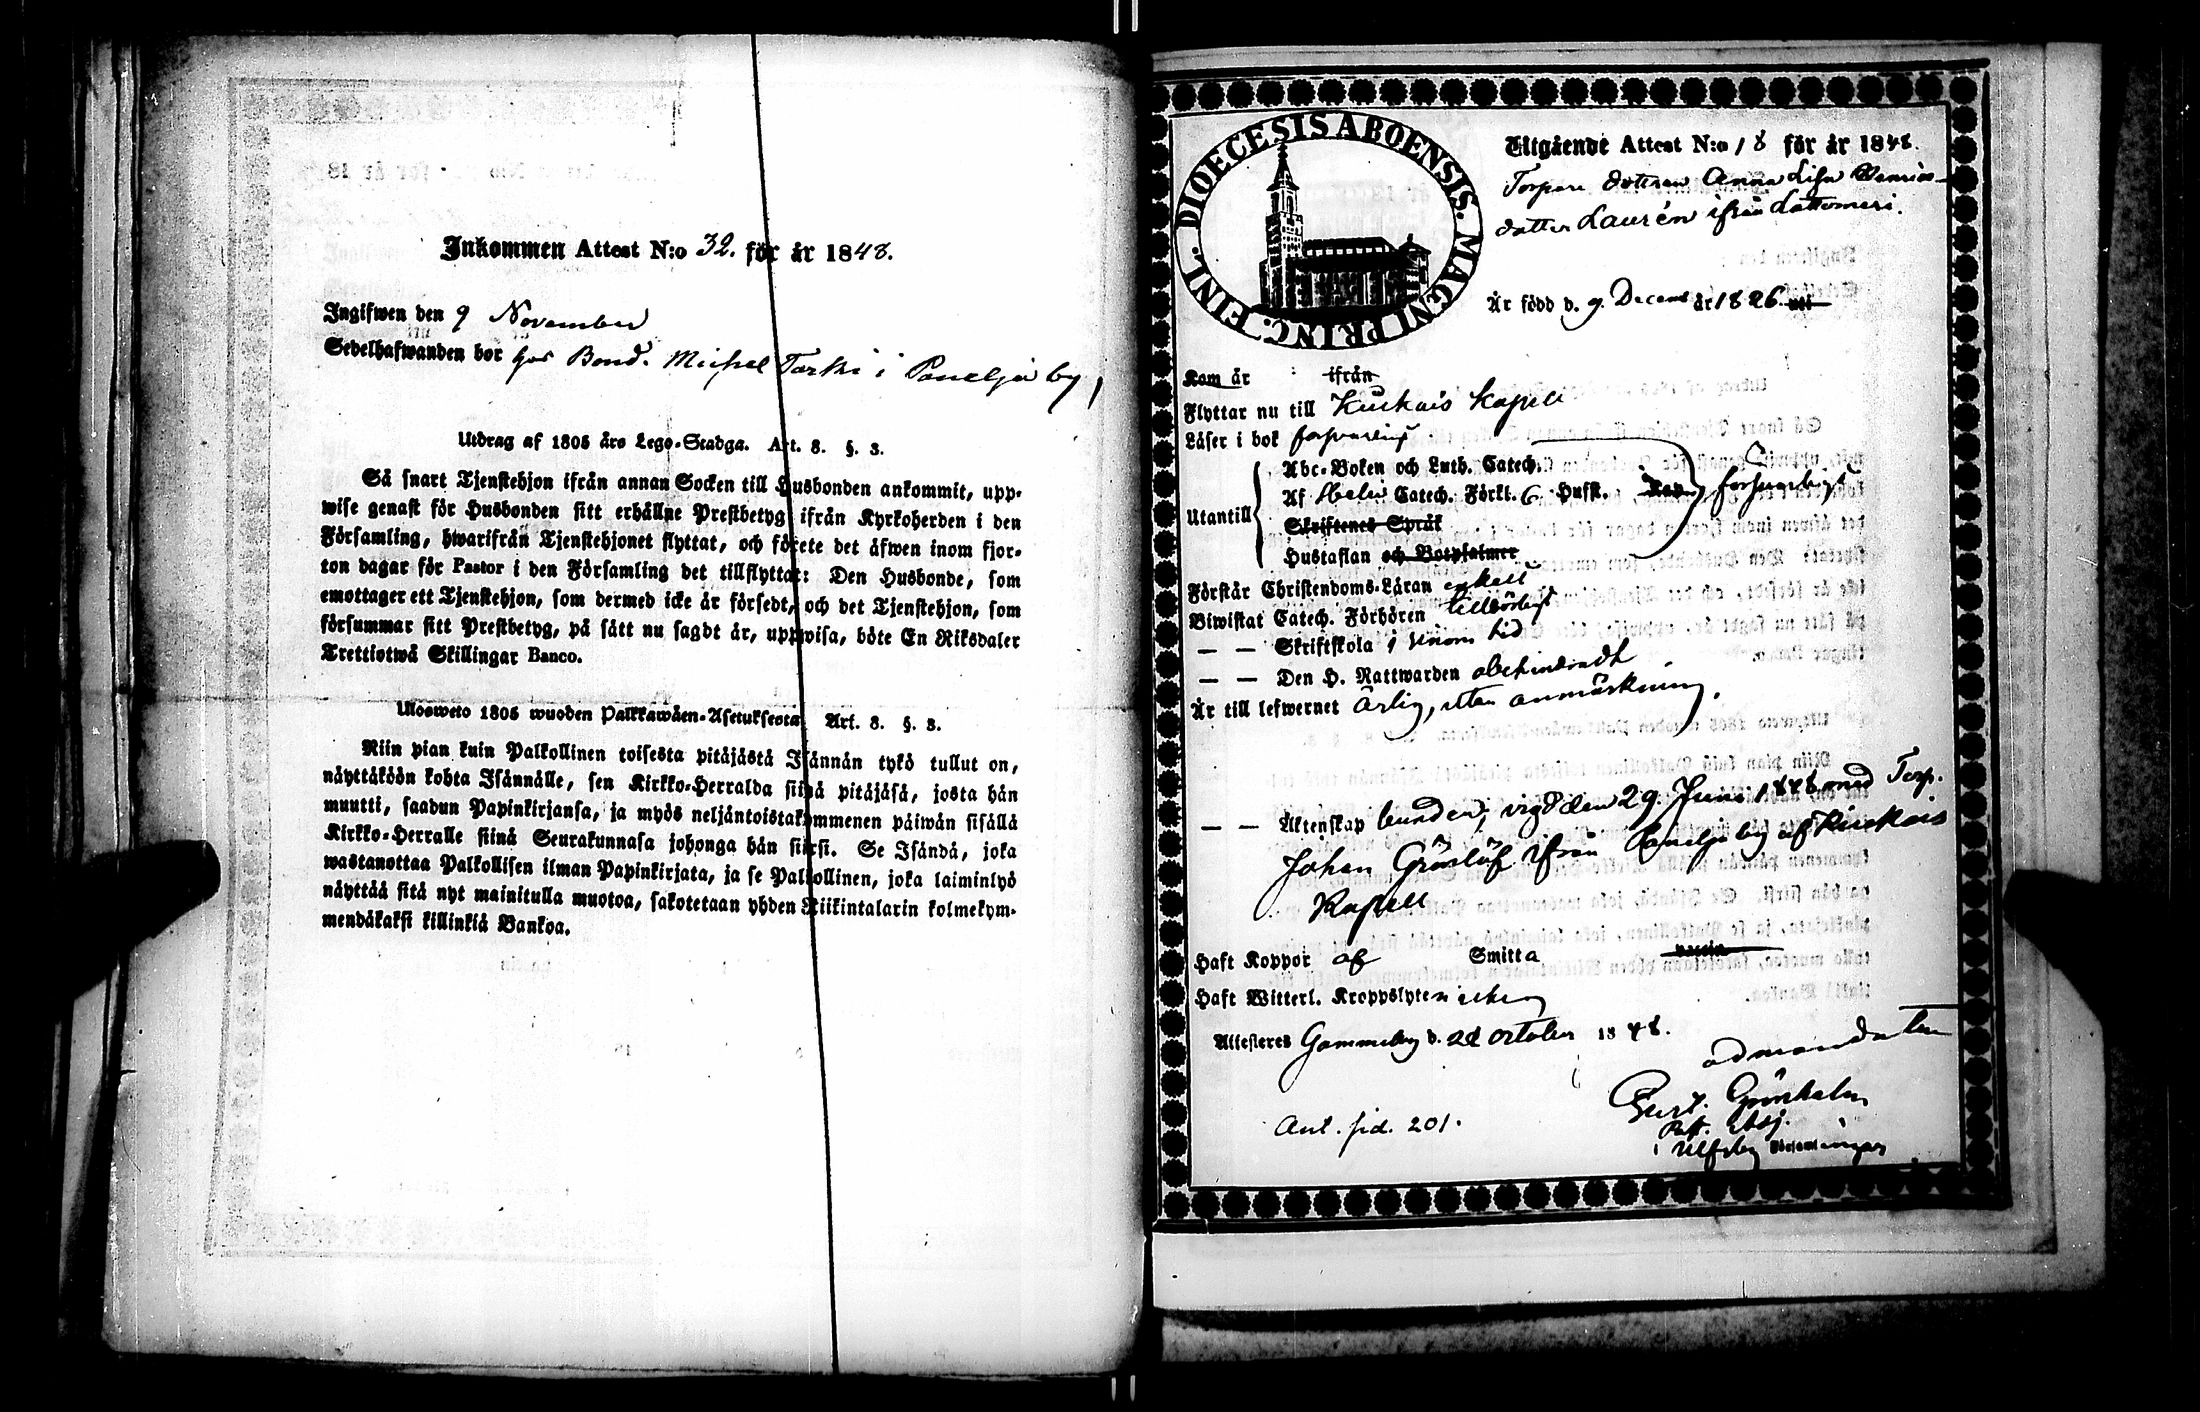 Inkommen Attest N:o 32. för år 1848.
Ingifwen den 9 November
Sedelhafwanden bor hos Bond. Michel Tarki i Panelja by,
Utdrag af 1805 års Lego-Stadga. Art. 8. §. 3.
Så snart Tjenstehjon ifrån annan Socken till Husbonden ankommit, upp-
wise genast för Husbonden sitt erhållne Prestbetyg ifrån Kyrkoherden i den
Församling, hwarifrån Tjenstehjonet flyttat, och förete det äfwen inom fjor-
ton dagar för Pastor i den Församling det tillflyttat: Den Husbonde, som
emottager ett Tjenstehjon, som dermed icke är försedt, och det Tjenstehjon, som
försummar sitt Prestbetyg, på sätt nu sagdt är, uppwisa, böte En Riksdaler
Trettiotwå Skillingar Banco.
Ulosweto 1805 wuoden Palkkawäen-Asetuksesta Art. 8. §. 3.
Niin pian kuin Palkollinen toisesta pitäjästä Isännän tykö tullut on,
näyttäköön kohta Isännälle, sen Kirkko-Herralda siinä pitäjäsä, josta hän
muutti, saadun Papinkirjansa, ja myös neljäntoistakymmenen päiwän sisällä
Kirkko-Herralle siinä Seurakunnasa johonga hän siirsi. Se Isändä, joka
wastanottaa Palkollisen ilman Papinkirjata, ja se Palkollinen, joka laiminlyö
näyttää sitä nyt mainitulla muotoa, sakotetaan yhden Riikintalarin kolmekym-
mendäkaksi killinkiä Bankoa.
DIOECESIS ABOENSIS. MAGNI PRINC. FINL.
Utgående Attest N:o 18 för år 1848.
Torpare dotteren Anna Lisa Henrics-
dotter Laurén ifrån Lattomeri.
Är född d. 9. Decemb år 1826. uti
Kom år ifrån
Flyttar nu till Kiukais Kapell
Läser i bok försvarligt
Utantill
Abc-Boken och Luth. Catech.
Af Catech. Förkl. 6 Hufst. försvarligt
Skriftenes Språk
Hustaflan och Botpsalmer
Förstår Christendoms-Läran enkelt
Biwistat Catech. Förhören tillbörligt
— — Skriftskola i sinom tid
— — Den H. Nattwarden obehindradt
Är till lefwernet Ärlig, utan anmärkning.
— — Äktenskap bunden, vigd den 29. Junii 1848 med Torp.
Johan Grönlöf ifrån Panelja by af Kiukais
Kapell
Haft Koppor af Smitta vaccin
Haft Witterl. Kroppslyten icke
Attesteres Gammelby d. 28 October 1848.
ad mandatum
Gust. Grönholm
Past. Adj.
i Ulfsby Församlingar
Ant. sid. 201.